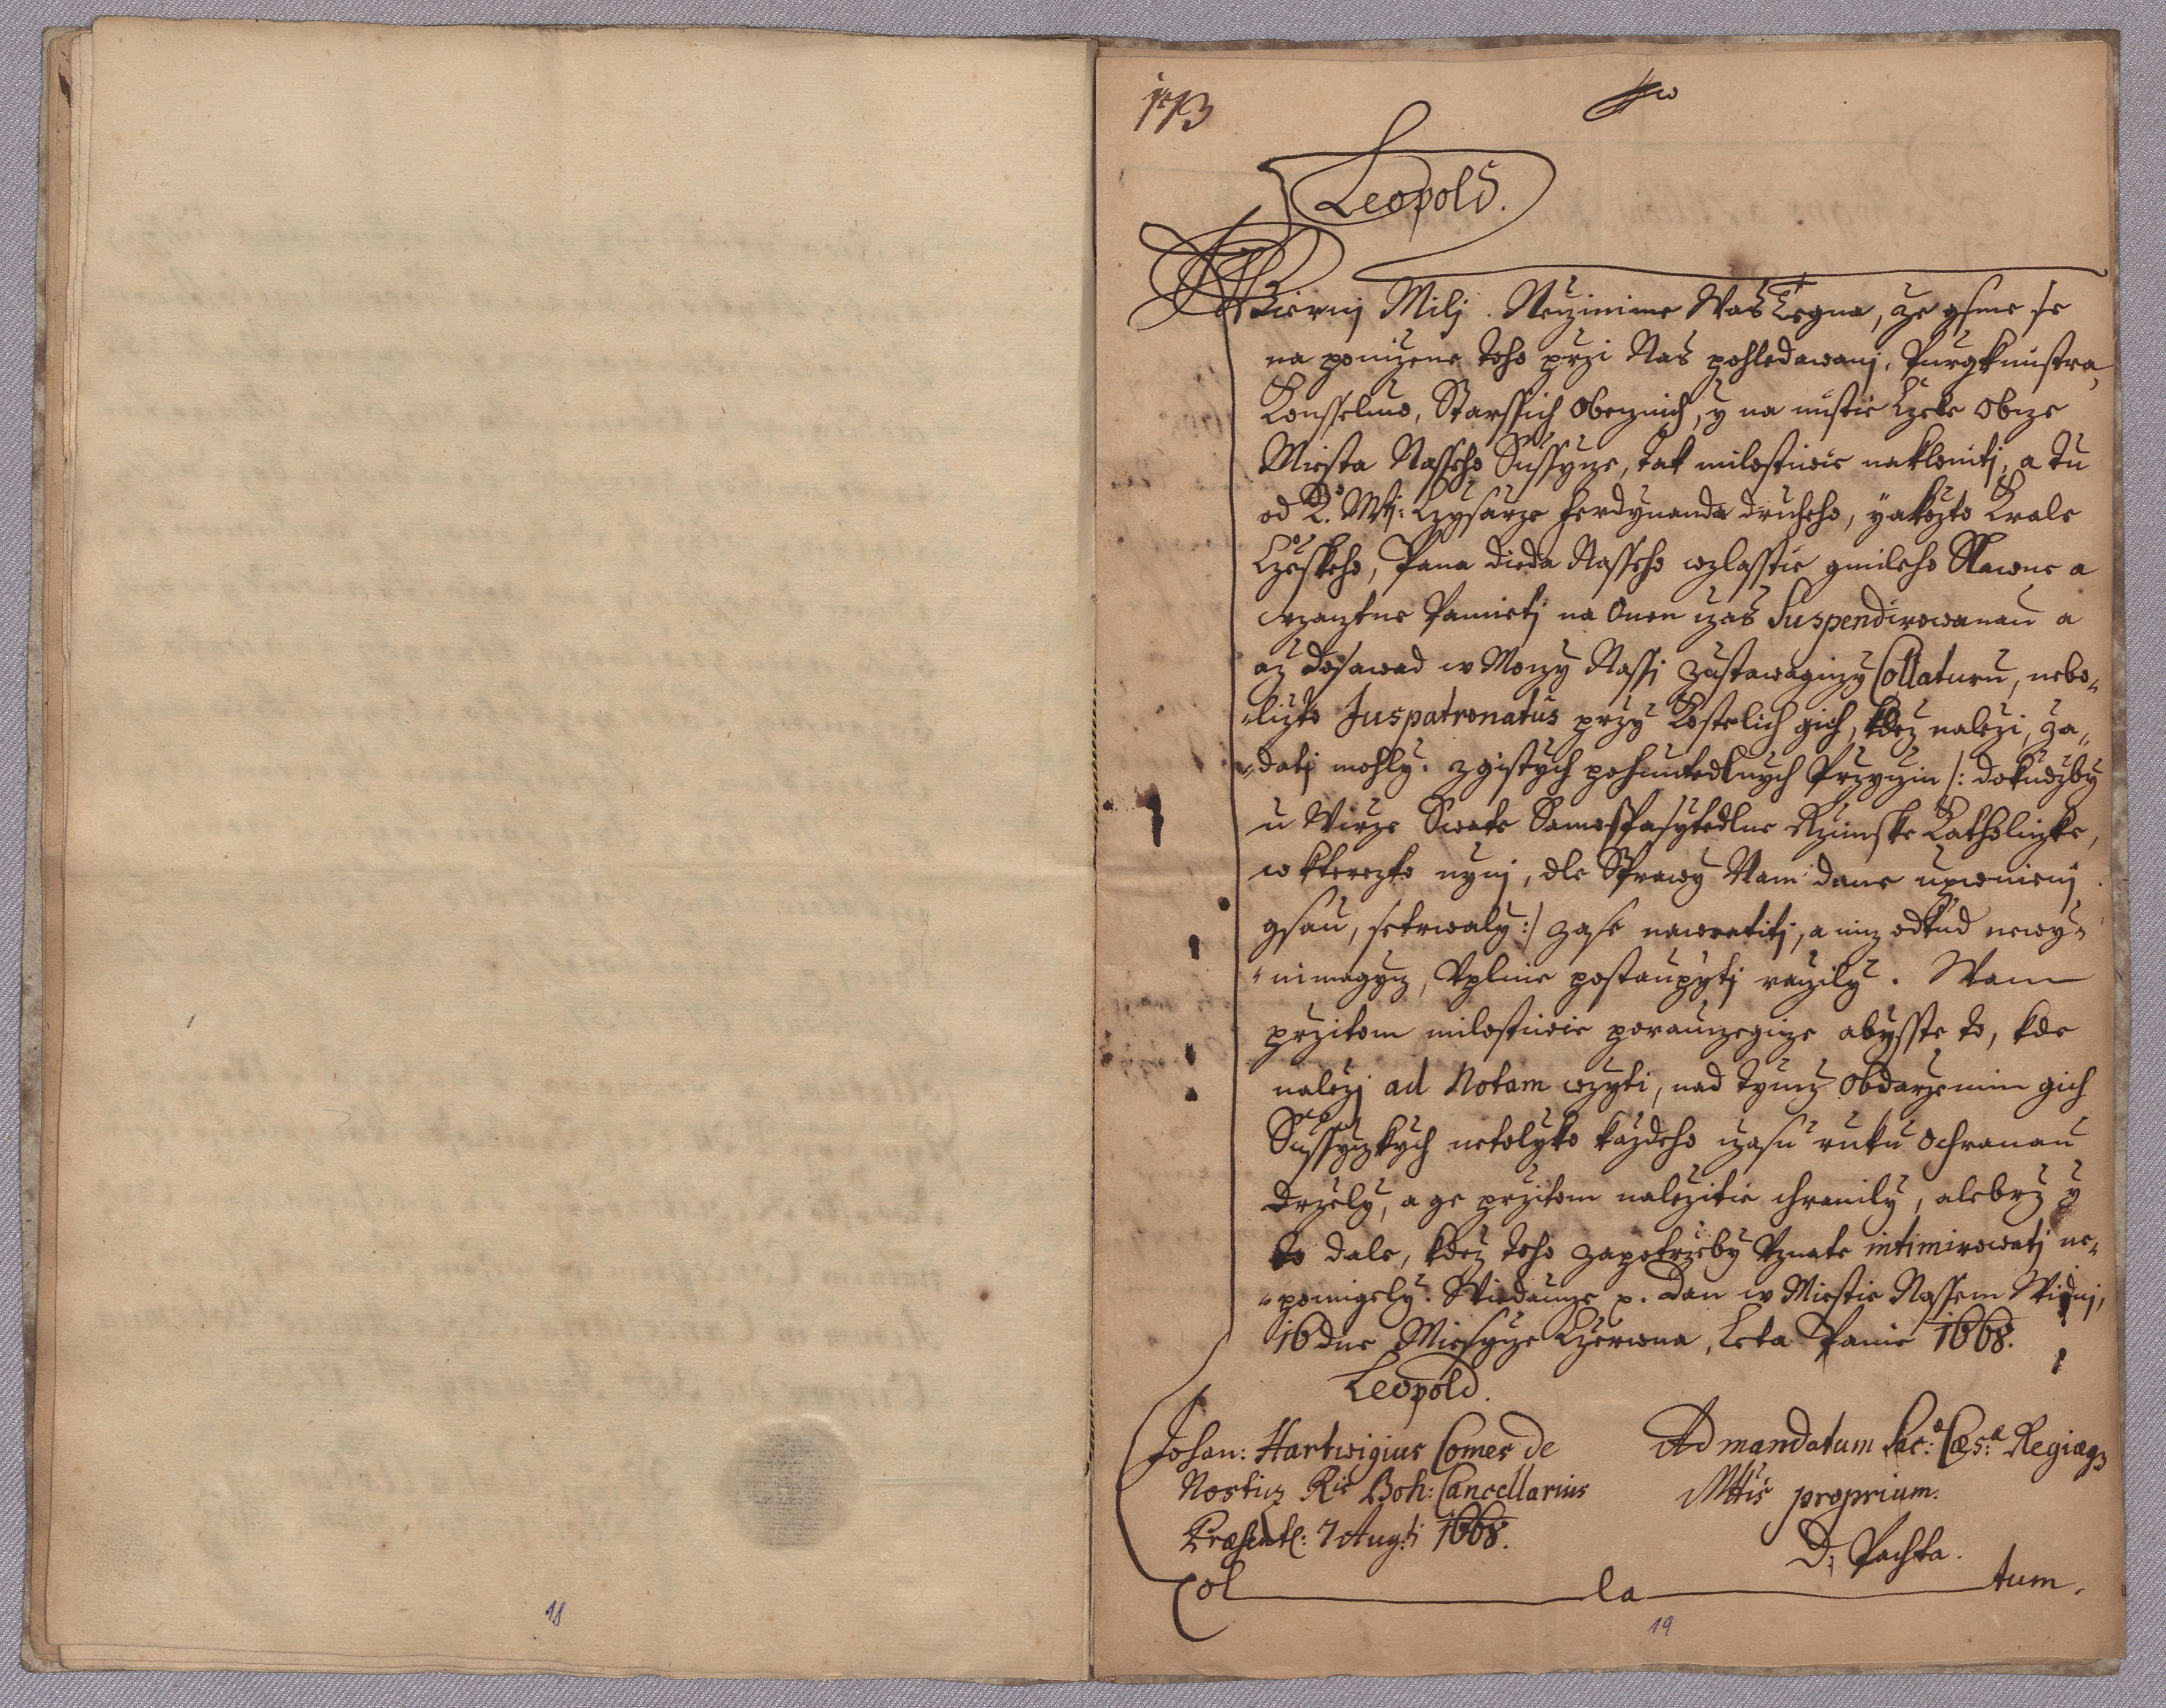 Leopold.
Wiernj Milj. Neczinime Was Tegna, ze gsme se
na ponizene toho przi Nas pohledawanj, Purgkmistra,
Konsseluw, Starssich Obecznich, y na mistie Czele Obcze
Miesta Nasseho Sussycze, tak milostiwie naklonitj, a tu
od K. Mtj: Czysarze Ferdynanda druheho, yakozto Krale
Czeskeho, Pana dieda Nasseho wzlasstie gmileho Slawne a
wzacztne Pamietj na Onen czas Suspendirowanau a
az dosawad w Moczy Nassj zustawagiczy Collaturu, nebo-
-lizto Juspatronatus przy Kostelich gich, kdez nalezi, za-
-datj mohly. z gistych pohnutedlnych Przyczin /: dokudzby
u Wirze Swate Samospasytedlne Rzimske Katholiczke,
w kterezto nynj, dle Sprawy Nam dane upewnienj
gsau, setrwaly :/ zase nawratitj, a nicz odtud newy-
-nimagycz, Vplnie postaupytj raczily. Wam
przitom milostiwie porauczegicze abysste to, kde
nalezj ad Notam wzyti, nad tymz Obdarzenim gich
Sussyczkych netolyko kazdeho czasu ruku Ochranau
Drzely, a ge przitom nalezitie chranily, alebrz y
to dale, kdez toho zapotrzeby Vznate intimirowatj ne-
-pominely. Wiedaucze p. Dan w Miestie Nassem Widnj,
16 dne Miesycze Czerwna, Leta Panie 1668.
Leopold.
Johan: Hartwigius Comes de
Nostiz Ris Boh: Cancellarius
Præsent: 7 Augti 1668.
Ad mandatum Sac: Cæs: Regiæq3
Mttis proprium.
D. Pachta.
Col la tum.
18
19